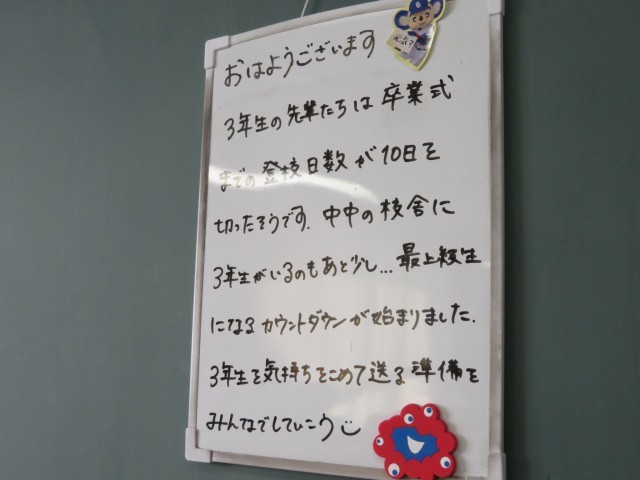 おはようございます
3年生の先輩たちは卒業式
までの登校日数が10日を
切ったそうです. 中中の校舎に
3年生がいるのもあと少し... 最上級生
になるカウントダウンが始まりました.
3年生を気持ちをこめて送る準備を
みんなでしていこう